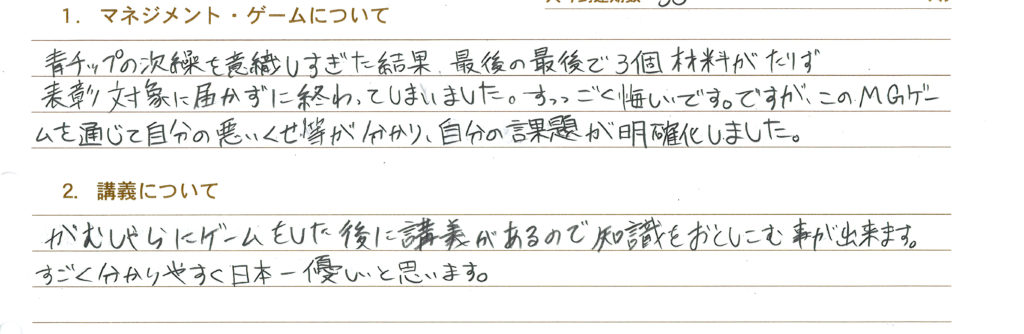 1. マネジメント・ゲームについて
青チップの次繰を意識しすぎた結果、最後の最後で3個材料がたりず
表彰対象に届かずに終わってしまいました。すっっごく悔しいです。ですが、このMGゲー
ムを通じて自分の悪いくせ等が分かり、自分の課題が明確化しました。
2. 講義について
がむしゃらにゲームをした後に講義があるので知識をおとしこむ事が出来ます。
すごく分かりやすく日本一優しいと思います。